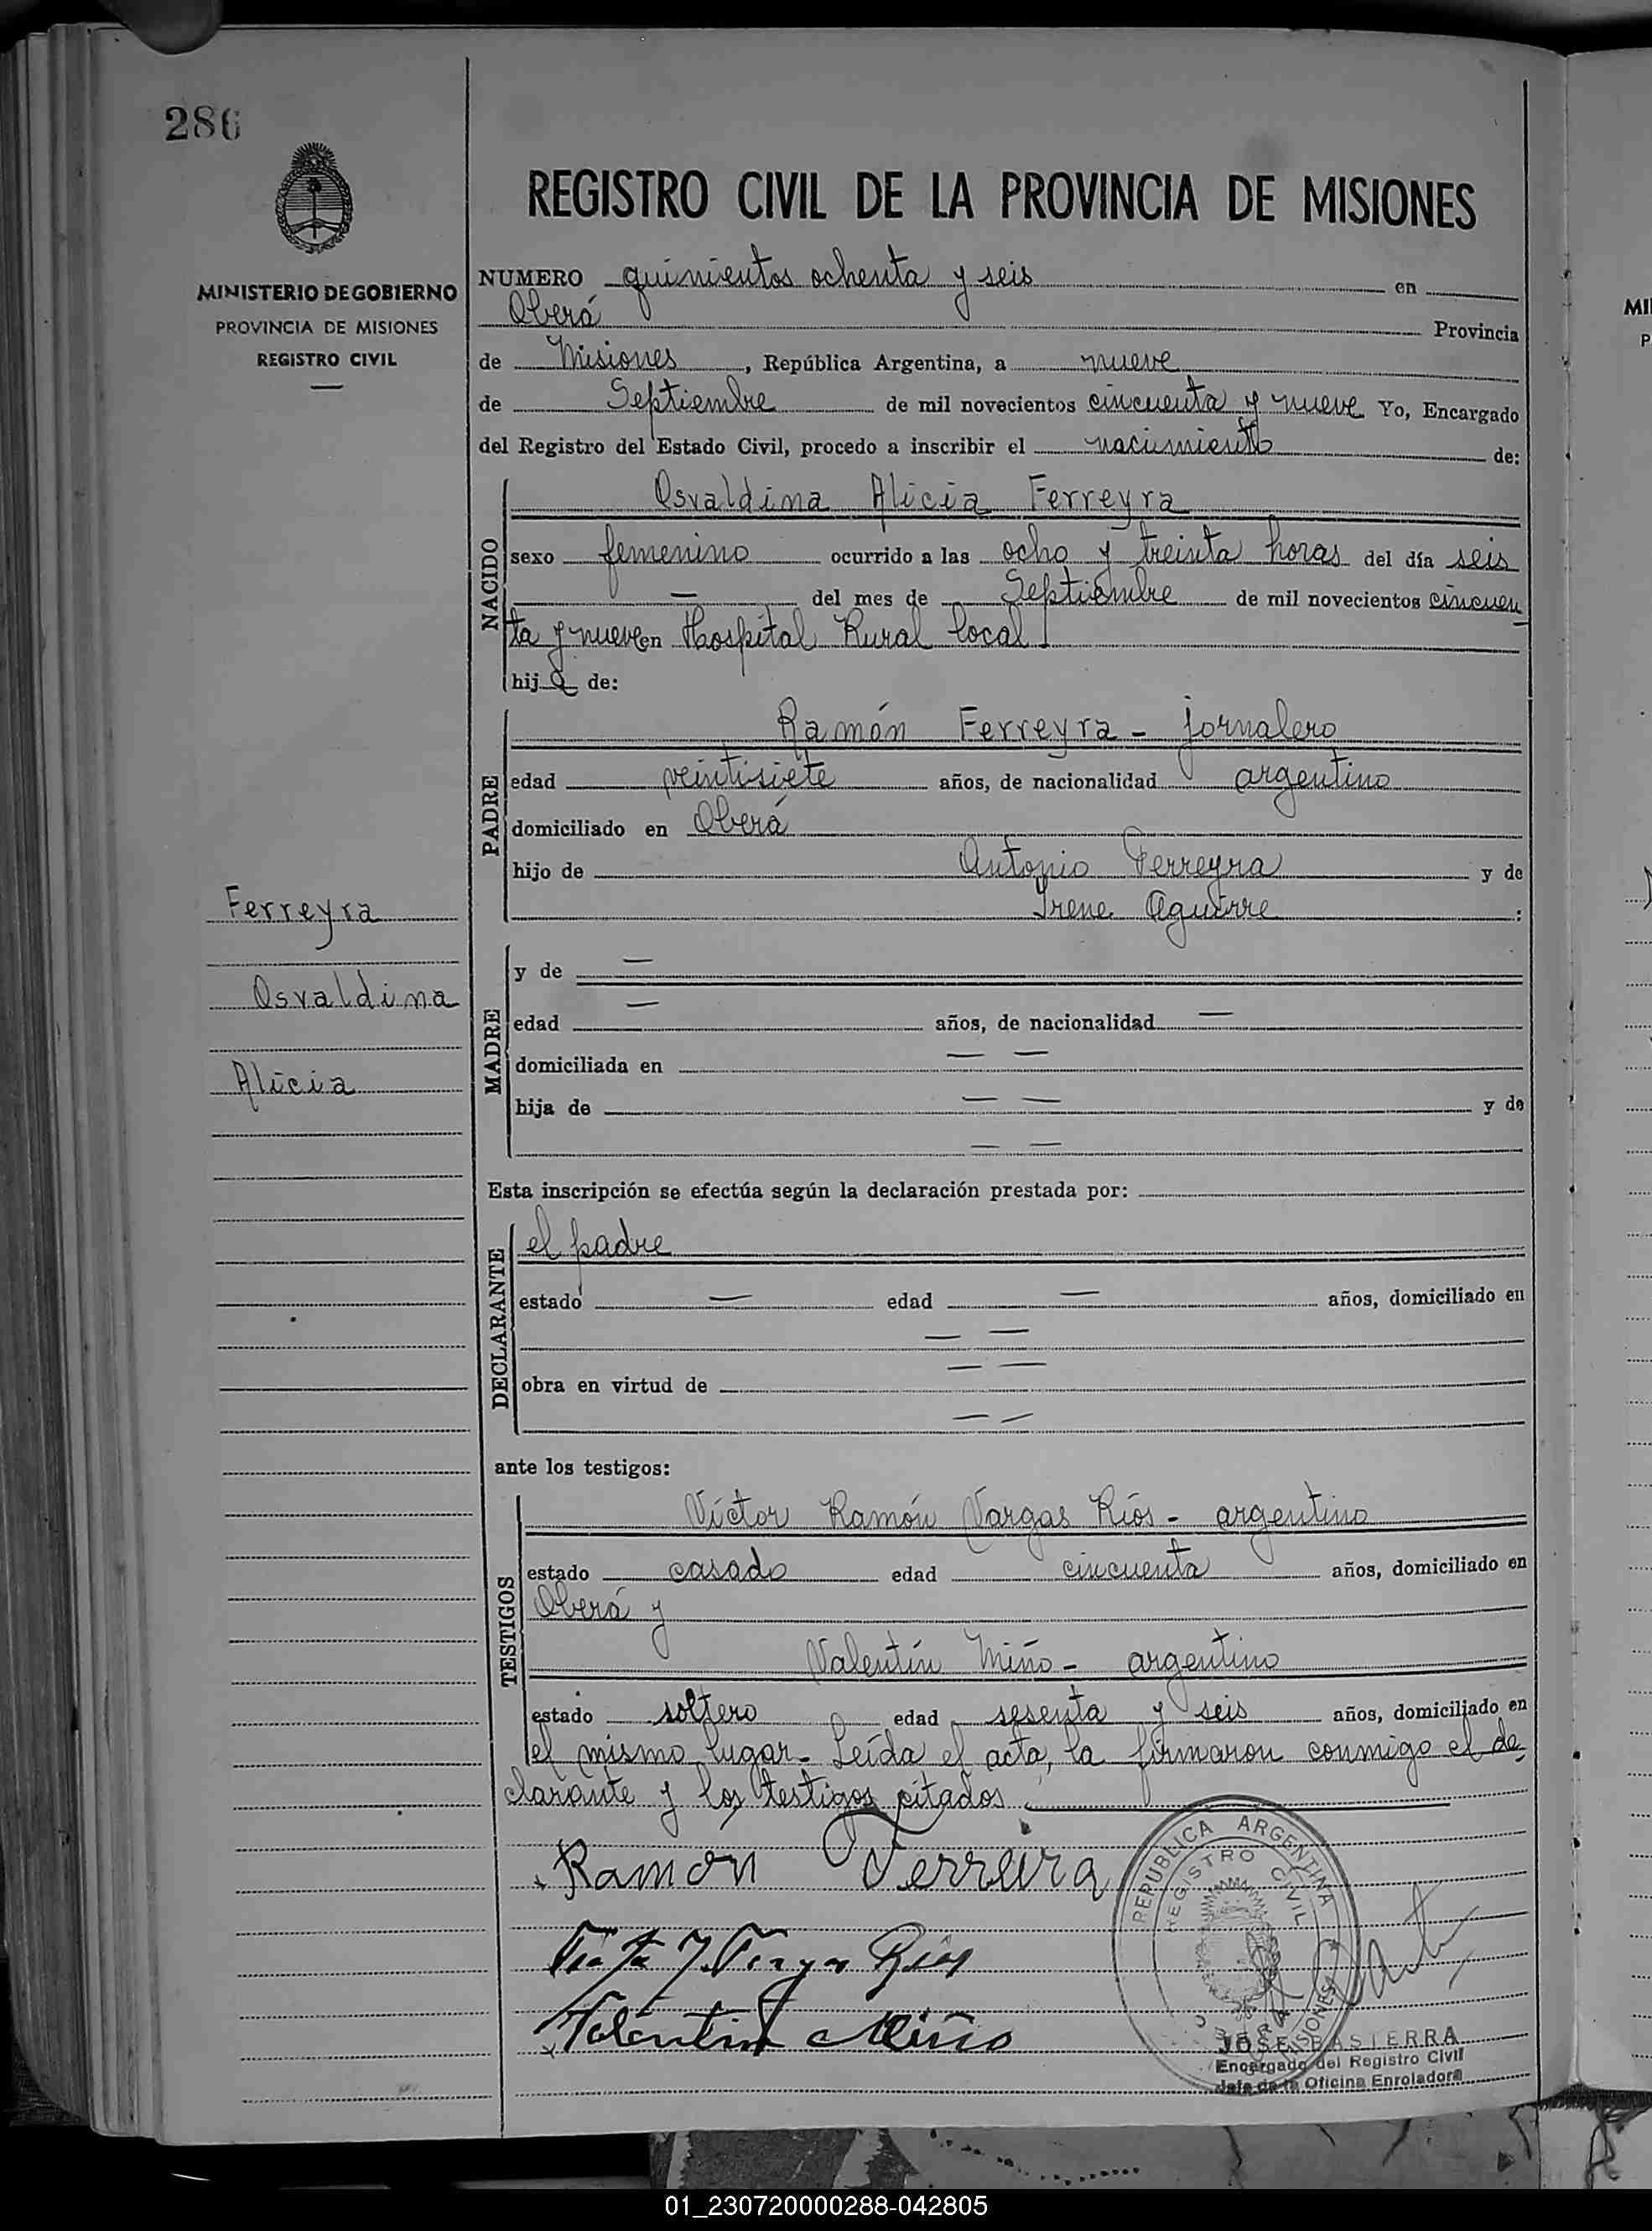 286
REGISTRO CIVIL DE LA PROVINCIA DE MISIONES
MINISTERIO DE GOBIERNO
PROVINCIA DE MISIONES
REGISTRO CIVIL
NUMERO quinientos ochenta y seis en
Oberá Provincia
de Misiones, República Argentina, a nueve
de Septiembre de mil novecientos cincuenta y nueve Yo, Encargado
del Registro del Estado Civil, procedo a inscribir el nacimiento de:
NACIDO
Osvaldina Alicia Ferreyra
sexo femenino ocurrido a las ocho y treinta horas del día seis
— del mes de Septiembre de mil novecientos cincuen
ta y nueve en Hospital Rural local.
hija de:
PADRE
Ramón Ferreyra - jornalero
edad veintisiete años, de nacionalidad argentino
domiciliado en Oberá
hijo de Antonio Ferreyra y de
Irene Aguirre :
Ferreyra
Osvaldina
Alicia
MADRE
y de —
edad — años, de nacionalidad —
domiciliada en — —
hija de — — y de
— —
Esta inscripción se efectúa según la declaración prestada por:
DECLARANTE
el padre
estado — edad — años, domiciliado en
— —
obra en virtud de — —
— —
ante los testigos:
TESTIGOS
Víctor Ramón Vargas Ríos - argentino
estado casado edad cincuenta años, domiciliado en
Oberá y
Valentín Miño - argentino
estado soltero edad sesenta y seis años, domiciliado en
el mismo lugar. Leída el acta, la firmaron conmigo el de
clarante y los testigos citados.
Ramon Ferreira
Ríos
Valentin Miño
REPUBLICA ARGENTINA
REGISTRO CIVIL
MISIONES
JOSE BASTERRA
Encargado del Registro Civil
Jefe de la Oficina Enroladora
MI
P
01_230720000288-042805